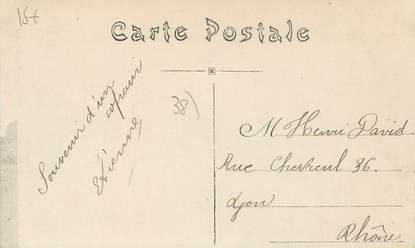 15€
Carte Postale
Souvenir d'un
copain
Etienne
38)
M Henri David
Rue Chevreul 36.
Lyon
Rhône